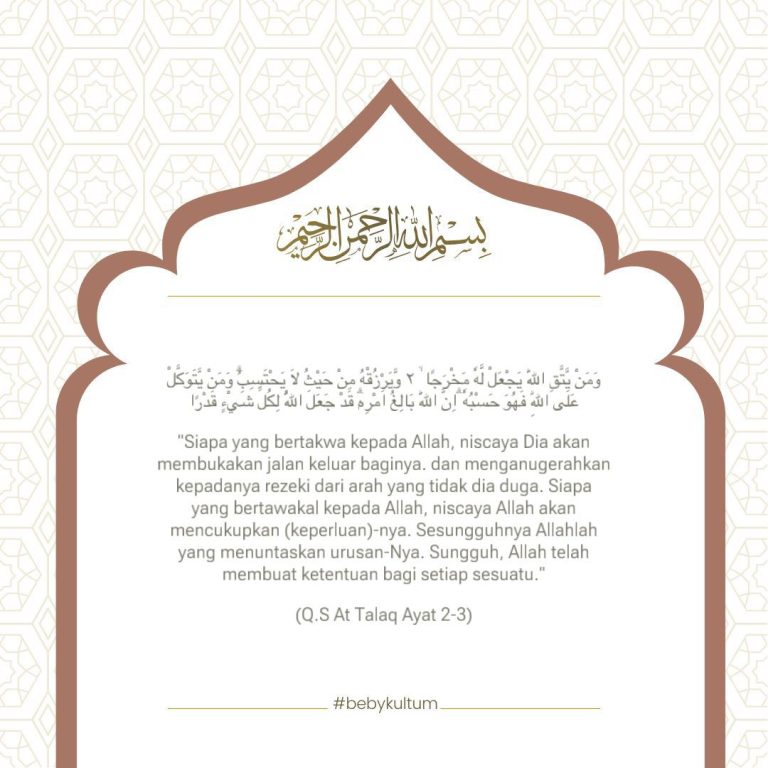 بِسْمِ اللهِ الرَّحْمٰنِ الرَّحِيْمِ
وَمَنْ يَّتَّقِ اللّٰهَ يَجْعَلْ لَّهٗ مَخْرَجًا ۙ ٢ وَّيَرْزُقْهُ مِنْ حَيْثُ لَا يَحْتَسِبُۗ وَمَنْ يَّتَوَكَّلْ
عَلَى اللّٰهِ فَهُوَ حَسْبُهٗ ۗاِنَّ اللّٰهَ بَالِغُ اَمْرِهٖۗ قَدْ جَعَلَ اللّٰهُ لِكُلِّ شَيْءٍ قَدْرًا
"Siapa yang bertakwa kepada Allah, niscaya Dia akan
membukakan jalan keluar baginya. dan menganugerahkan
kepadanya rezeki dari arah yang tidak dia duga. Siapa
yang bertawakal kepada Allah, niscaya Allah akan
mencukupkan (keperluan)-nya. Sesungguhnya Allahlah
yang menuntaskan urusan-Nya. Sungguh, Allah telah
membuat ketentuan bagi setiap sesuatu."
(Q.S At Talaq Ayat 2-3)
#bebykultum